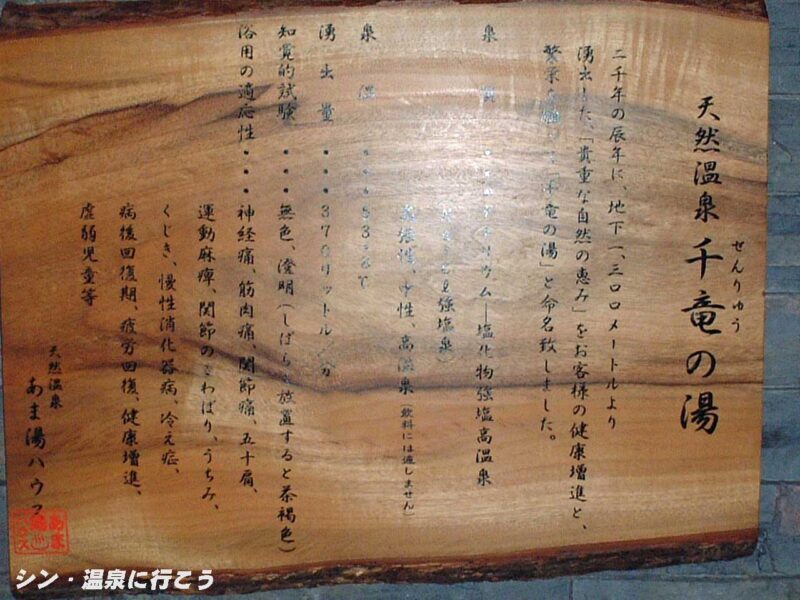 天然温泉 千竜の湯
せんりゅう
二千年の辰年に、地下一、三〇〇メートルより
湧出した、「貴重な自然の恵み」をお客様の健康増進と、
繁栄を願いて「千竜の湯」と命名致しました。
泉 ・・・ナトリウム―塩化物強塩高温泉
強塩泉)
性、高温泉(飲料には適しません)
泉温・・・53 ℃
湧出量・・・370リットル/分
知覚的試験・・・無色、澄明(しばらく放置すると茶褐色)
浴用の適応性・・・神経痛、筋肉痛、関節痛、五十肩、
運動麻痺、関節のこわばり、うちみ、
くじき、慢性消化器病、冷え症、
病後回復期、疲労回復、健康増進、
虚弱児童等
天然温泉
あま湯ハウス
シン・温泉に行こう